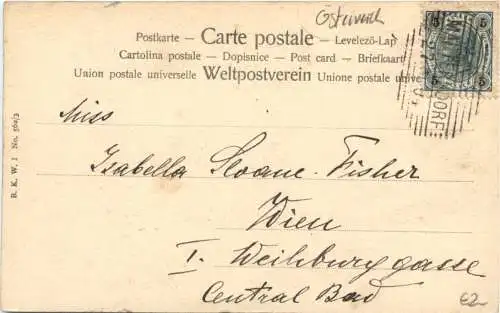 Österreich
Postkarte — Carte postale — Levelező-Lap
Cartolina postale — Dopisnice — Post card — Briefkaart
Union postale universelle Weltpostverein Unione postale unive
5 5
5 5
DORF
Miss
Isabella Sloane-Fisher
Wien
I. Weihburggasse
Central Bad
B. K. W. I No. 562/3
€2-